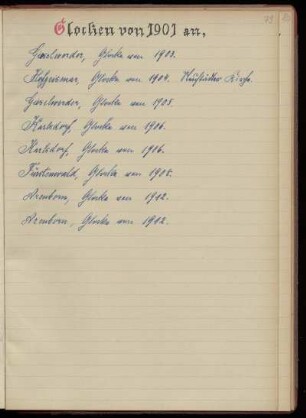 79
Glocken von 1901 an,
Glocke von 1903.
Hofgeismar, Glocke von 1904. Neustädter Kirche.
Glocke von 1905.
Karlsdorf, Glocke von 1906.
Karlsdorf, Glocke von 1906.
Fürstenwald, Glocke von 1908.
Arenborn, Glocke von 1912.
Arenborn, Glocke von 1912.